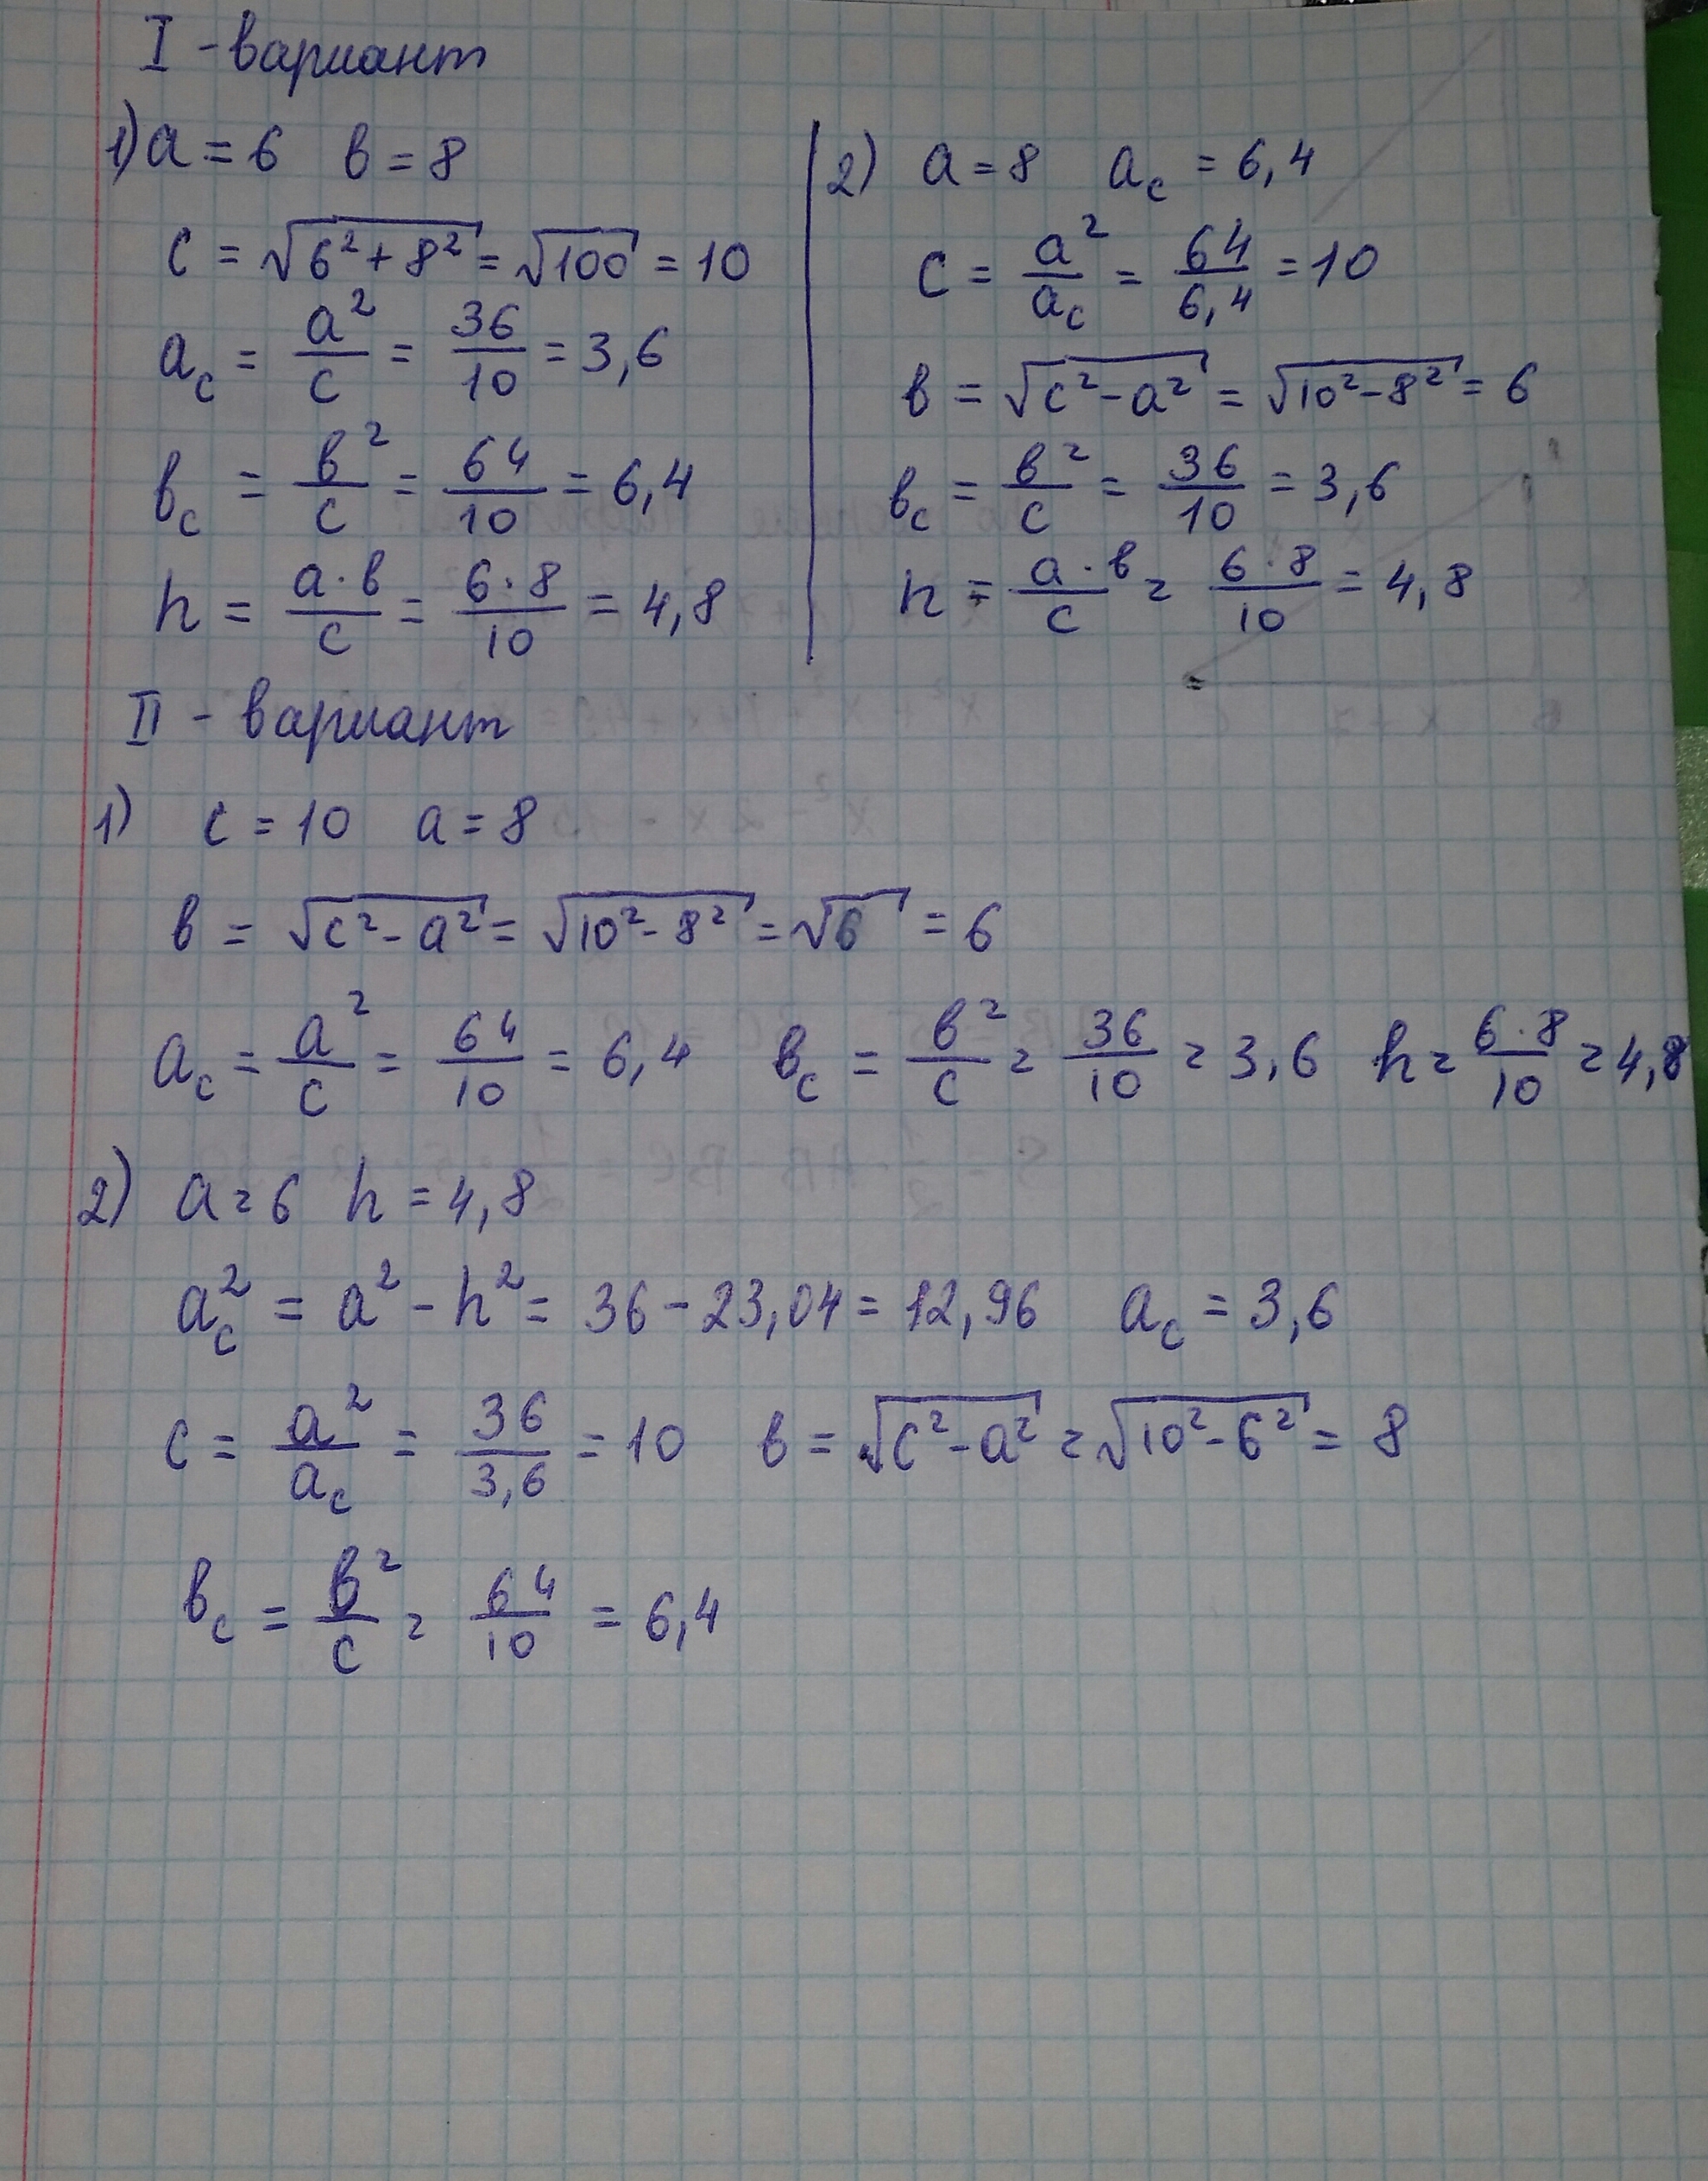 I - вариант
1) a = 6 в = 8
c = √(6² + 8²) = √100 = 10
a_c = a²/c = 36/10 = 3,6
в_c = в²/c = 64/10 = 6,4
h = a·в/c = 6·8/10 = 4,8
2) a = 8 a_c = 6,4
c = a²/a_c = 64/6,4 = 10
в = √(c² - a²) = √(10² - 8²) = 6
в_c = в²/c = 36/10 = 3,6
h = a·в/c = 6·8/10 = 4,8
II - вариант
1) c = 10 a = 8
в = √(c² - a²) = √(10² - 8²) = √6 = 6
a_c = a²/c = 64/10 = 6,4 в_c = в²/c = 36/10 = 3,6 h = 6·8/10 = 4,8
2) a = 6 h = 4,8
a_c² = a² - h² = 36 - 23,04 = 12,96 a_c = 3,6
c = a²/a_c = 36/3,6 = 10 в = √(c² - a²) = √(10² - 6²) = 8
в_c = в²/c = 64/10 = 6,4